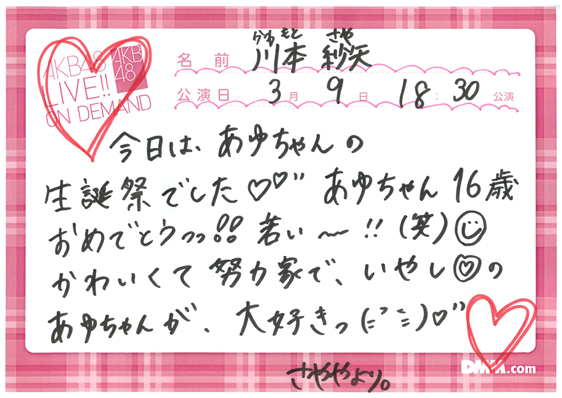 AKB48
LIVE!!
ON DEMAND
AKB
48
かわもと さや
名前 川本 紗矢
公演日 3月 9日 18:30公演
今日は、あゆちゃんの
生誕祭でした♡♡" あゆちゃん 16歳
おめでとうっっ!! 若い〜!! (笑)☺
かわいくて努力家で、いやし♡の
あゆちゃんが、大好きっ(="=)♡"
DMM.com
さややより。